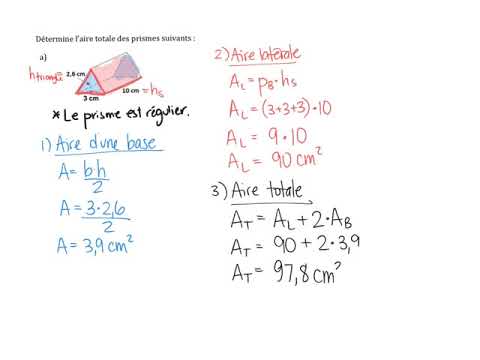 Détermine l'aire totale des prismes suivants :
a)
h triangle = 2,6 cm
10 cm = hs
3 cm
* Le prisme est régulier.
1) Aire d'une base
A = b·h
2
A = 3·2,6
2
A = 3,9 cm²
2) Aire latérale
AL = PB·hs
AL = (3+3+3)·10
AL = 9·10
AL = 90 cm²
3) Aire totale
AT = AL + 2·AB
AT = 90 + 2·3,9
AT = 97,8 cm²